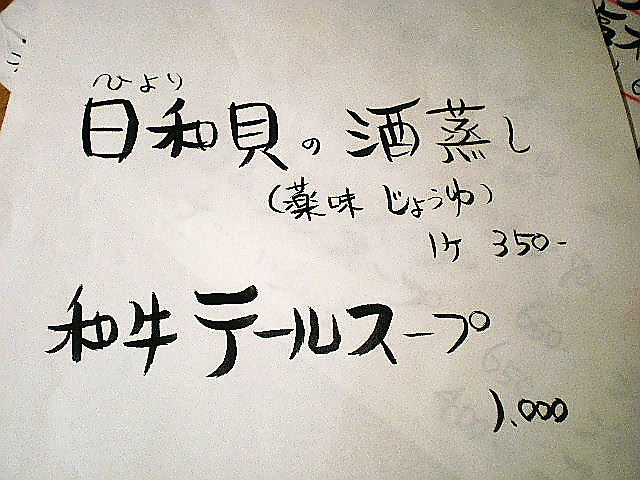 ひより
日和貝の酒蒸し
(薬味じょうゆ)
1ケ 350-
和牛テールスープ
1,000